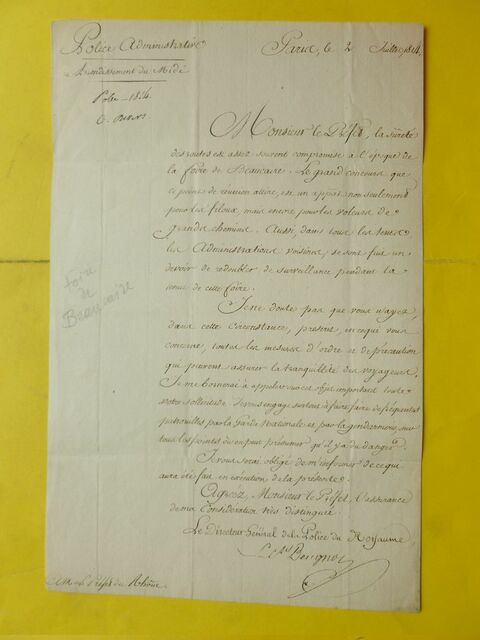 Police Administrative
Arrondissement du Midi
Paris, le 2 Juillet 1814.
Monsieur le Préfet, la sûreté
des routes est assez souvent compromise à l'époque de
la foire de Beaucaire. Le grand concours que
ce point de réunion attire, est un appât non seulement
pour les filoux, mais encore pour les voleurs de
grands chemins. Aussi, dans tous les tems
les Administrations voisines, se sont fait un
devoir de redoubler de surveillance pendant la
tenue de cette foire.
Je ne doute pas que vous n'ayez,
dans cette circonstance, prescrit, en ce qui vous
concerne, toutes les mesures d'ordre et de précaution
qui peuvent assurer la tranquillité des voyageurs.
Je me bornerai à appeler sur cet objet important toute
votre sollicitude. Je vous engage surtout à faire faire de fréquentes
patrouilles par la Garde Nationale et par la gendarmerie, sur
tous les points où on peut présumer qu'il y a du danger.
Je vous serai obligé de m'informer de ce qui
aura été fait en exécution de la présente.
Agréez, Monsieur le Préfet, l'assurance
de ma considération très distinguée.
Le Directeur Général de la Police du Royaume,
Beugnot
foire
de
Beaucaire
à M. le Préfet du Rhône